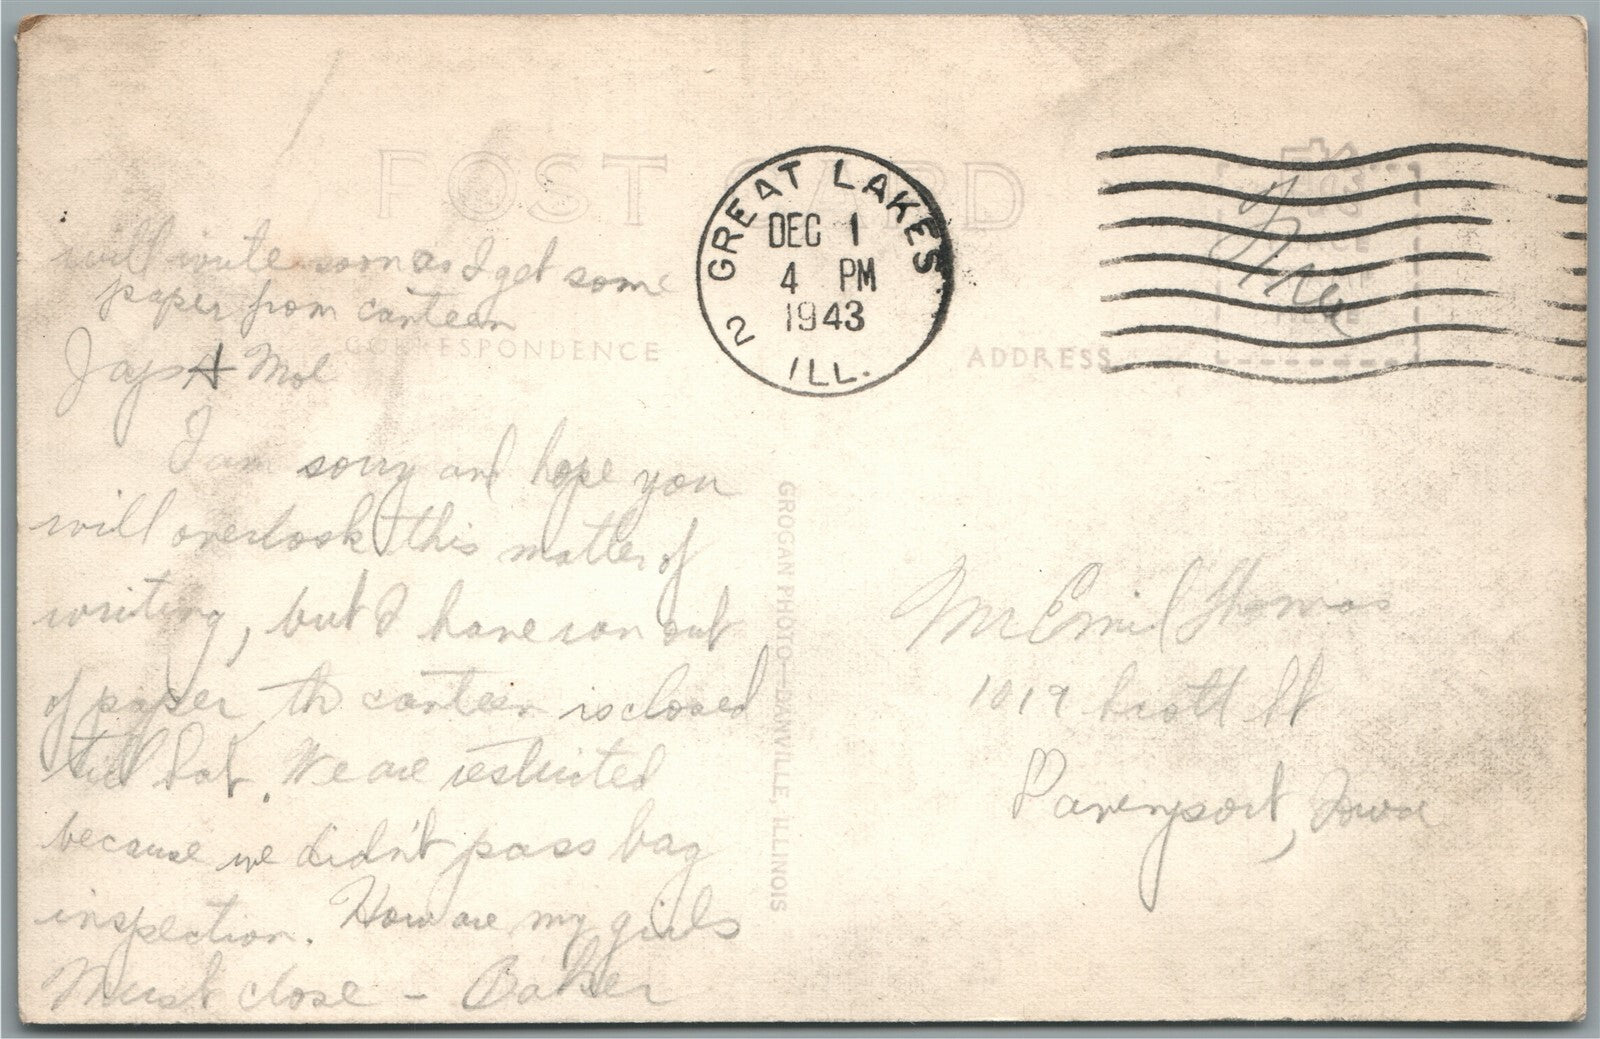 POST CARD
GREAT LAKES
DEC 1
4 PM
1943
2 ILL.
Free
PLACE
STAMP
HERE
will write soon as I get some
paper from canteen
CORRESPONDENCE
ADDRESS
& Mol
I am sorry and hope you
will overlook this matter of
writing, but I have ran out
of paper, th canteen is closed
till Sat. We are restricted
because we didn't pass bag
inspection. How are my girls
Must close - Baker
GROGAN PHOTO—DANVILLE, ILLINOIS
Mr Emil Thomas
1019 Scott St
Davenport, Iowa